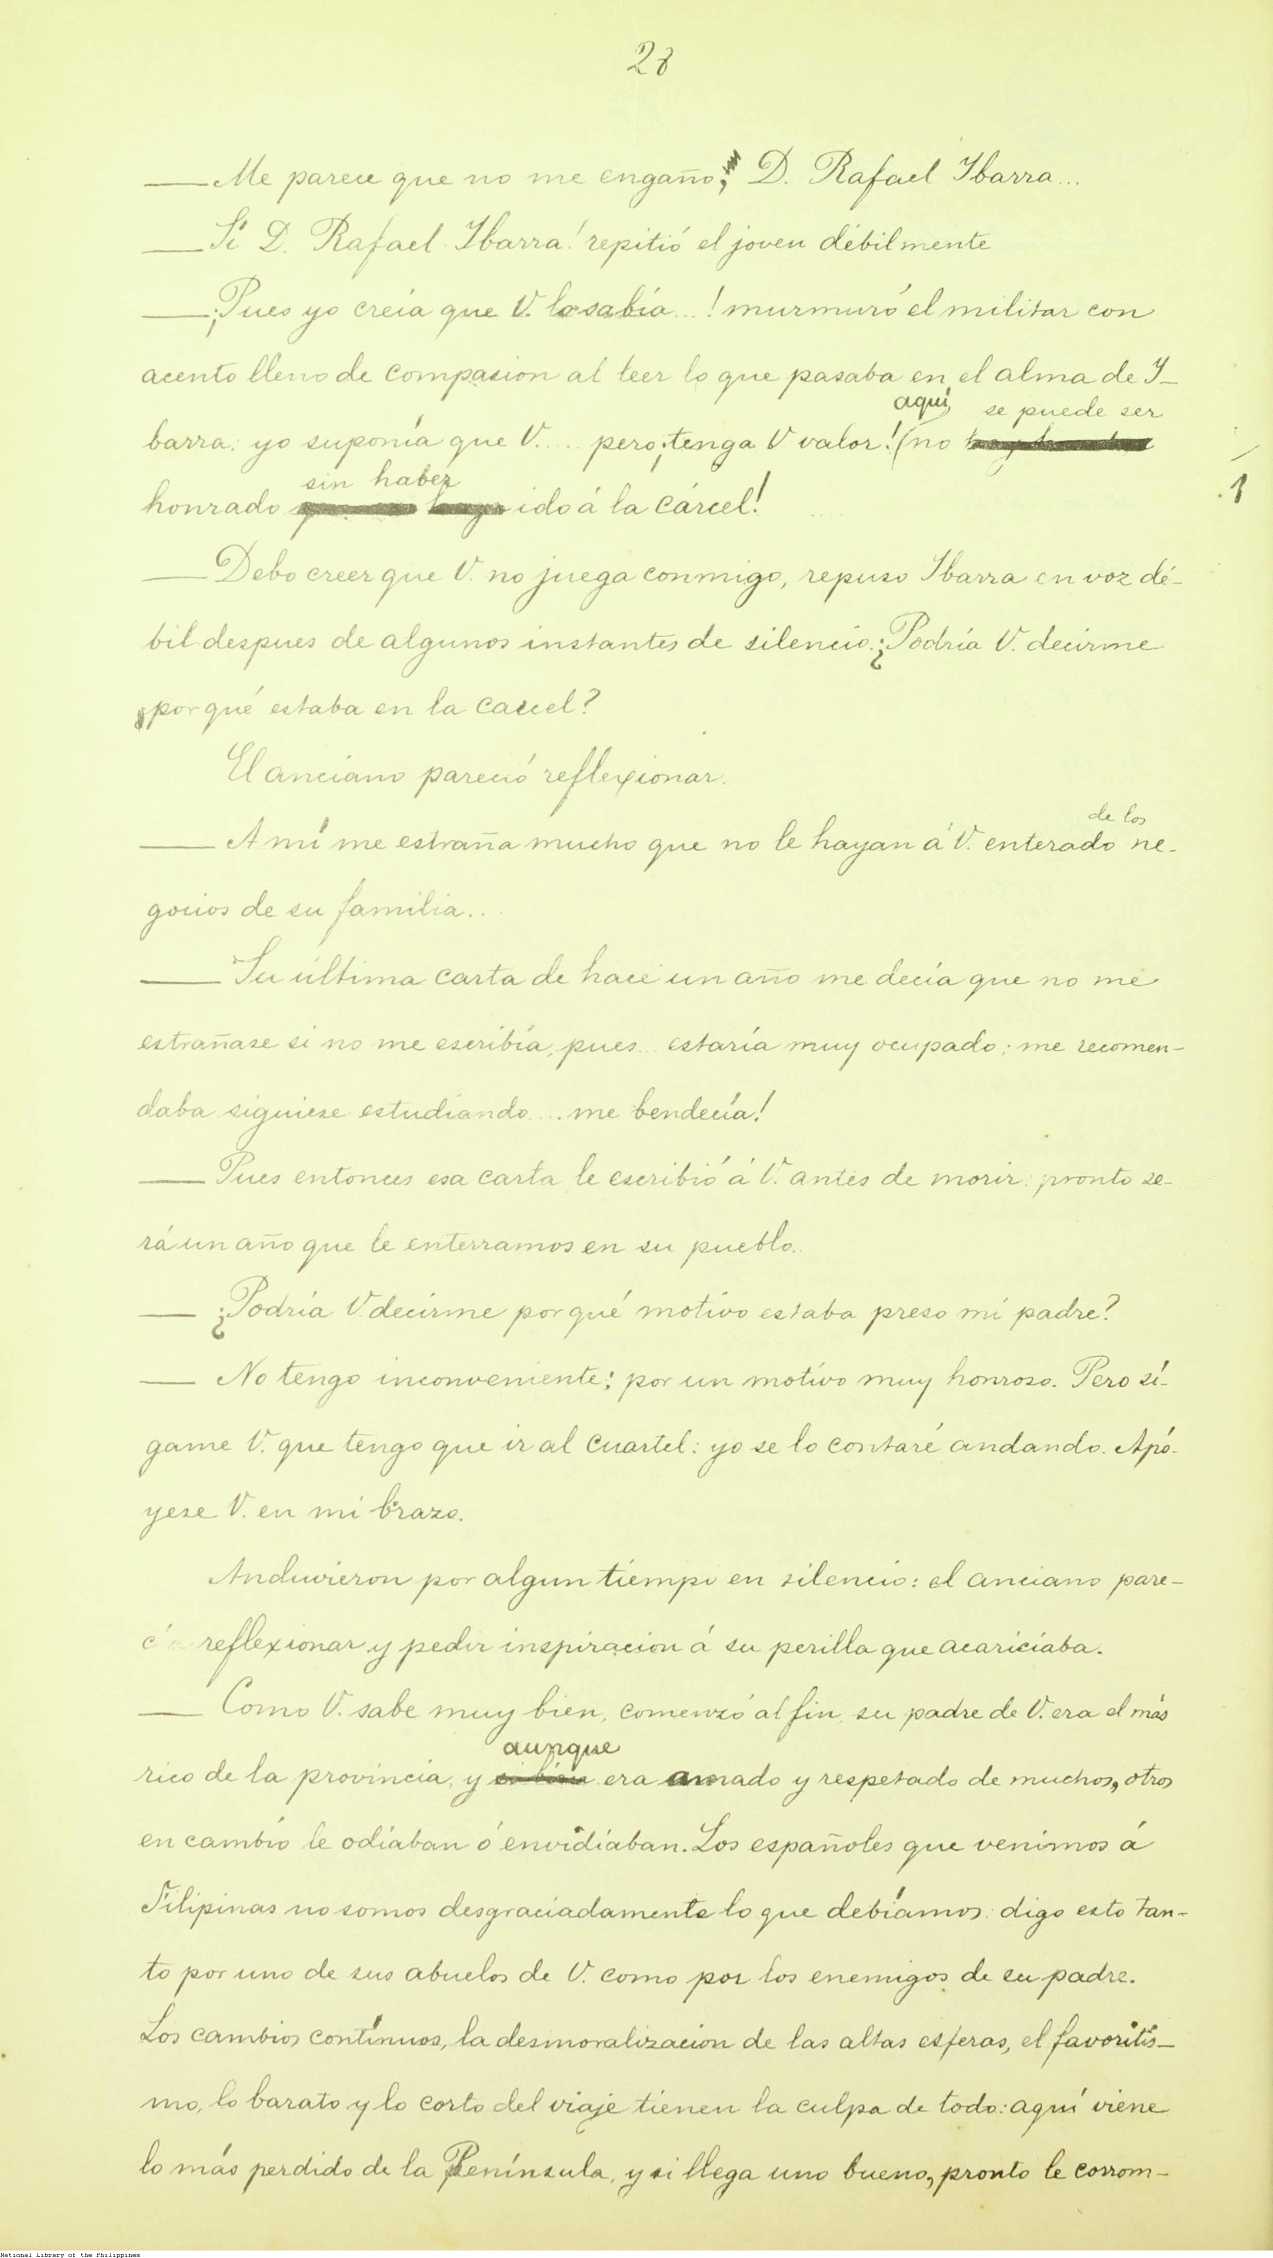 28
— Me parece que no me engaño, D. Rafael Ibarra...
— Sí D. Rafael Ibarra! repitió el joven débilmente
— ¡Pues yo creía que V. lo sabía...! murmuró el militar con
acento lleno de compasion al leer lo que pasaba en el alma de I-
aquí, se puede ser
barra: yo suponía que V.... pero ¡tenga V valor! (no
1
sin haber
honrado ido á la cárcel!
— Debo creer que V. no juega conmigo, repuso Ibarra en voz dé-
bil despues de algunos instantes de silencio. ¿Podría V. decirme
por qué estaba en la carcel?
El anciano pareció reflexionar.
de los
— A mí me estraña mucho que no le hayan á V. enterado ne-
gocios de su familia..
— Su última carta de hace un año me decía que no me
estrañase si no me escribía, pues... estaría muy ocupado; me recomen-
daba siguiese estudiando.... me bendecía!
— Pues entonces esa carta le escribió á V. antes de morir: pronto se-
rá un año que le enterramos en su pueblo..
— ¿Podría V decirme por qué motivo estaba preso mi padre?
— No tengo inconveniente; por un motivo muy honroso. Pero sí-
game V. que tengo que ir al cuartel: yo se lo contaré andando. Apó-
yese V. en mi brazo.
Anduvieron por algun tiempo en silencio: el anciano pare-
cía reflexionar y pedir inspiracion á su perilla que acariciaba.
— Como V. sabe muy bien, comenzó al fin, su padre de V. era el más
aunque
rico de la provincia, y si bien era amado y respetado de muchos, otros
en cambio le odiaban ó envidiaban. Los españoles que venimos á
Filipinas no somos desgraciadamente lo que debíamos: digo esto tan-
to por uno de sus abuelos de V. como por los enemigos de su padre.
Los cambios contínuos, la desmoralizacion de las altas esferas, el favoritis-
mo, lo barato y lo corto del viaje tienen la culpa de todo: aquí viene
lo más perdido de la Península, y si llega uno bueno, pronto le corrom-
National Library of the Philippines